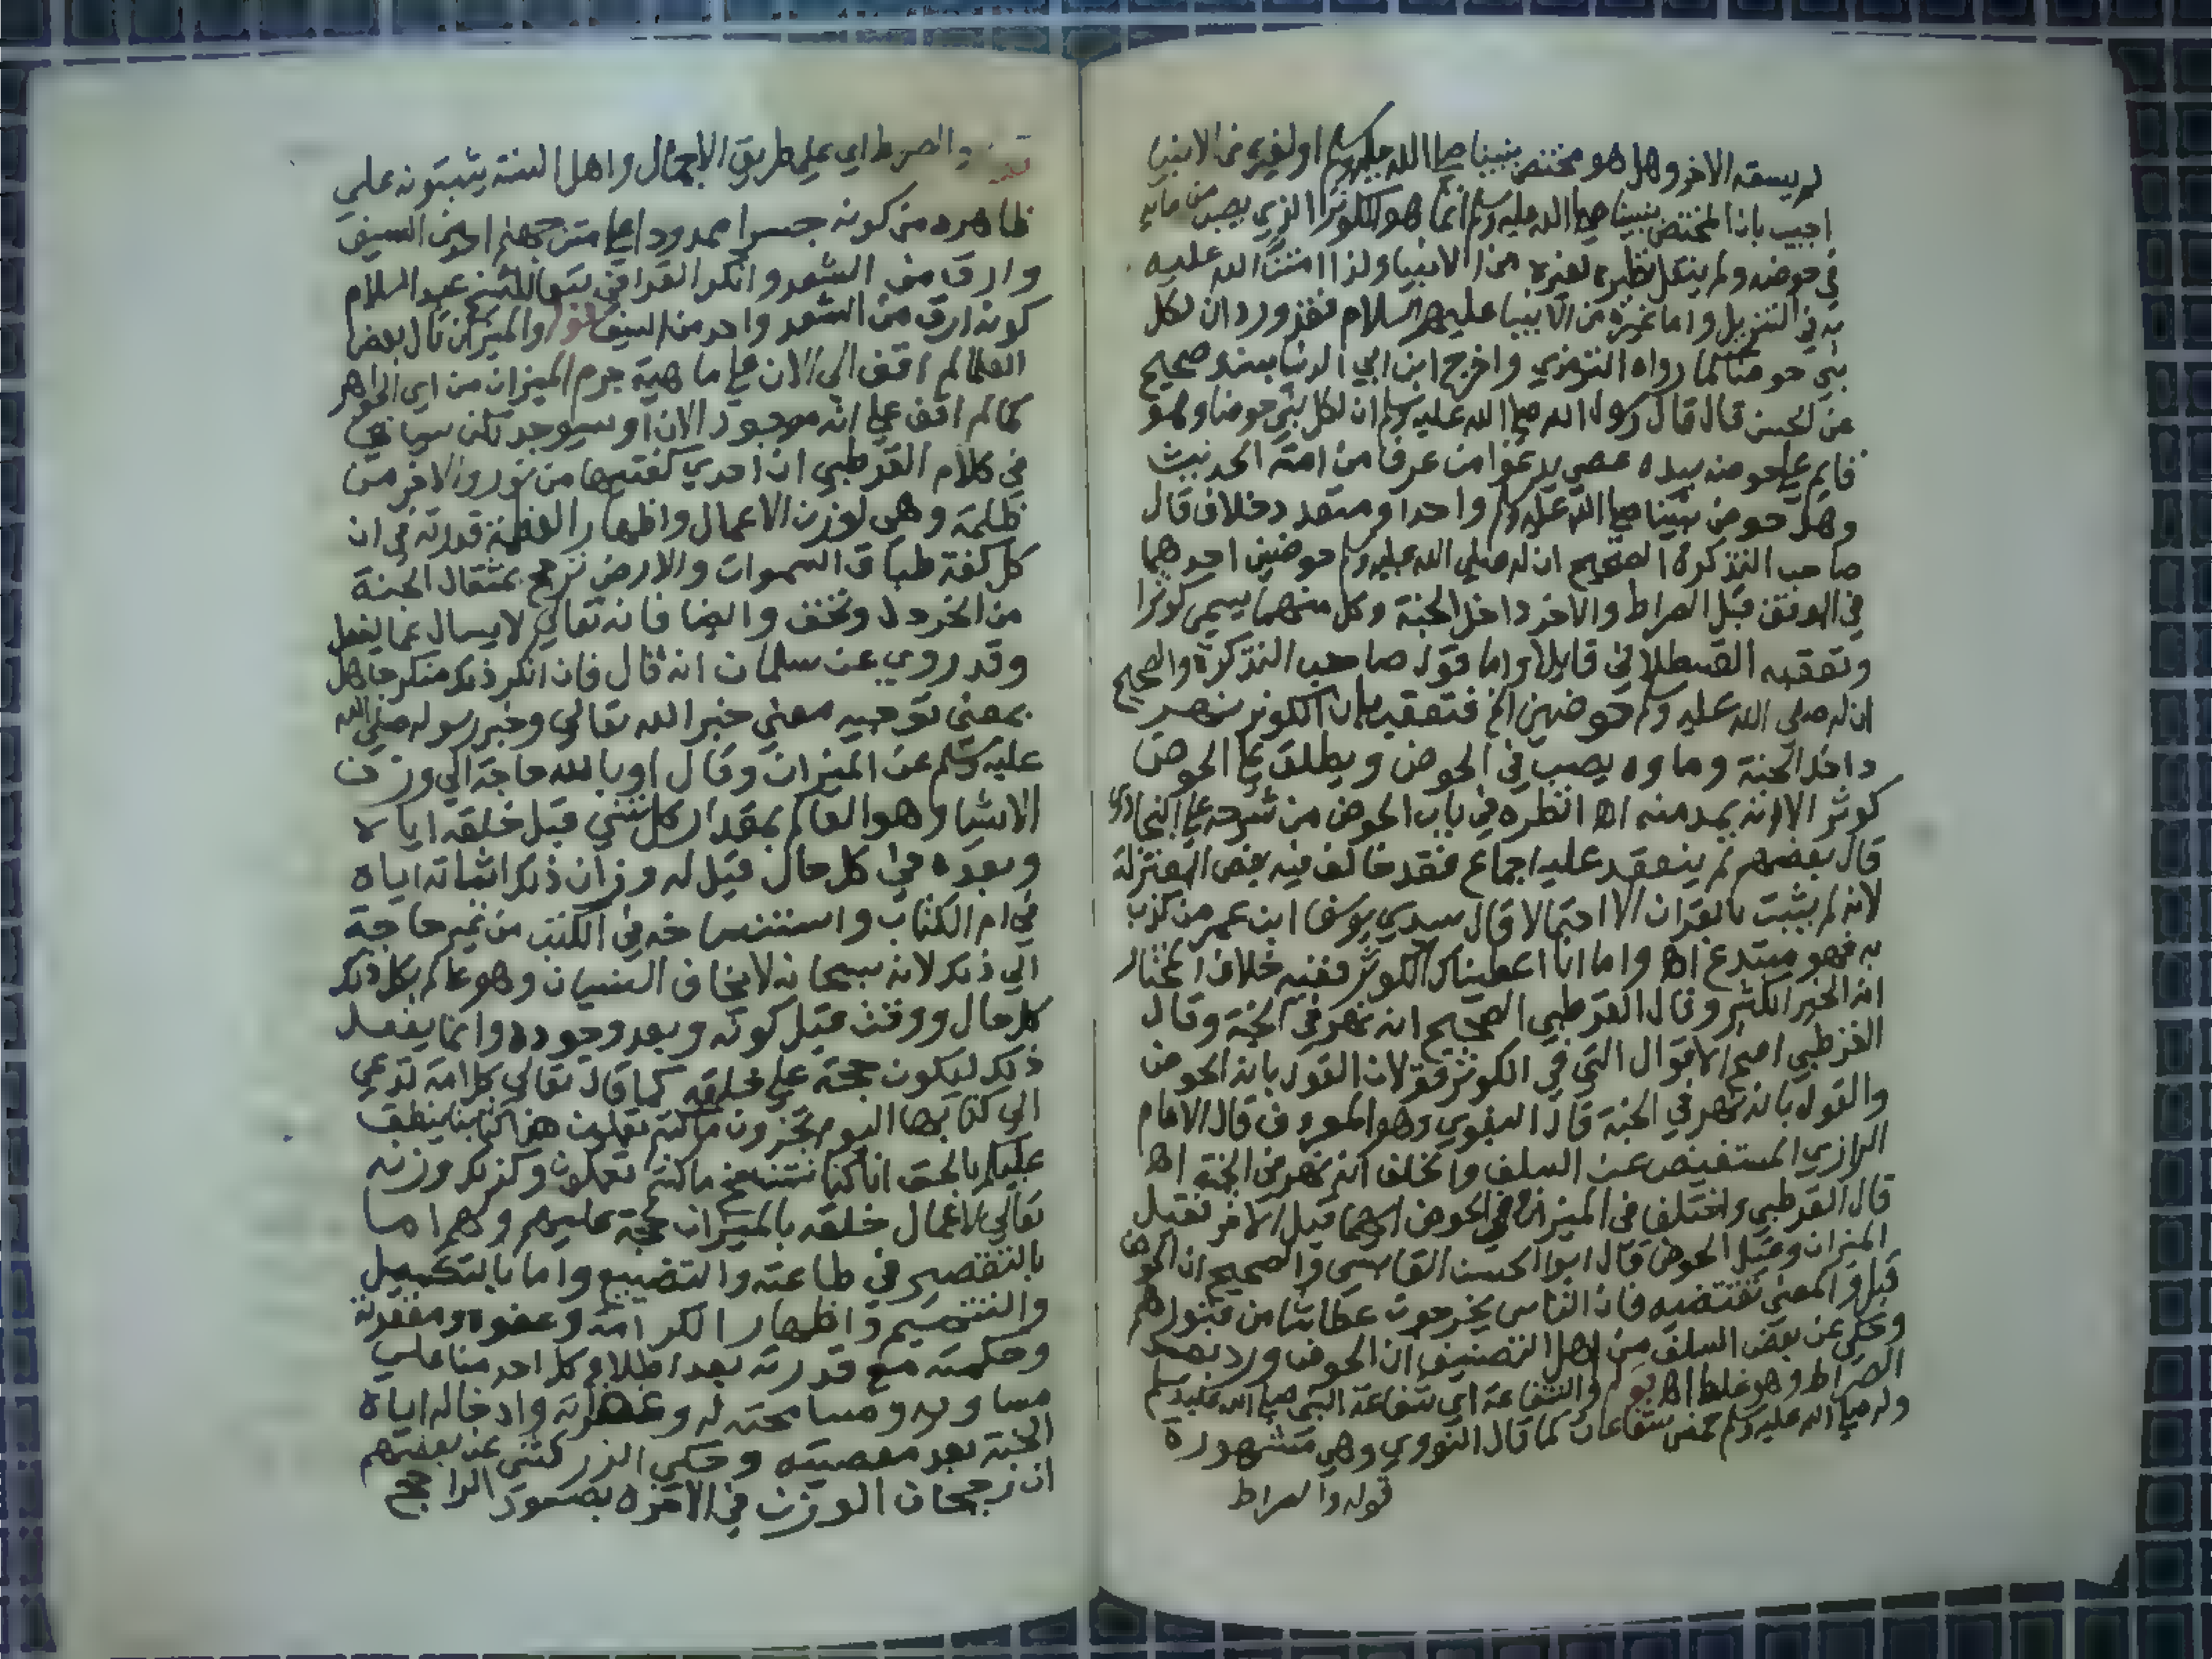 لم يسقه الاخر وهل هو مختص بنبينا صلى الله عليه وسلم او لغيره من الانبيا
اجيب بان المختص بنبينا صلى الله عليه وسلم انما هو الكوثر الذي يصب من مايه
في حوضه ولم ينقل نظيره لغيره من الانبيا ولذا امتن الله عليه
به في التنزيل واما غيره من الانبيا عليهم السلام فقد ورد ان لكل
نبي حوضا كما رواه الترمذي واخرج ابن ابي الدنيا بسند صحيح
عن الحسن قال قال رسول الله صلى الله عليه وسلم ان لكل نبي حوضا وهو
قايم على حوضه بيده عصى يدعوا من عرف من امته الحديث
وهل حوض نبينا صلى الله عليه وسلم واحد او متعدد خلاف قال
صاحب التذكرة الصحيح ان له صلى الله عليه وسلم حوضين احدهما
في الموقف قبل الصراط والاخر داخل الجنة وكل منهما يسمى كوثرا
وتعقبه القسطلاني قايلا واما قول صاحب التذكرة والصحيح
ان له صلى الله عليه وسلم حوضين الخ فتعقب بان الكوثر نهر
داخل الجنة وماوه يصب في الحوض ويطلق على الحوض
كوثر الا انه يمد منه اه انظره في باب الحوض من شرحه على البخاري
قال بعضهم لم ينعقد عليه اجماع فقد خالف فيه بعض المعتزلة
لانه لم يثبت بالقران الا احتمالا قال سيدي يوسف ابن عمر من كذب
به فهو مبتدع اه واما انا اعطيناك الكوثر ففيه خلاف المختار
انه الخير الكثير وقال القرطبي الصحيح انه نهر في الجنة وقال
القرطبي اصح الاقوال التي في الكوثر قولان القول بانه الحوض
والقول بانه نهر في الجنة قال البغوي وهو المعروف قال الامام
الرازي المستفيض عند السلف والخلف انه نهر في الجنة اه
قال القرطبي واختلف في الميزان في الحوض ايهما قبل الاخر فقيل
الميزان وقيل الحوض قال ابوا الحسن القابسي والصحيح ان الحوض
قبل والمعنى تقتضيه فان الناس يخرجون عطاشا من قبورهم
وحكي عن بعض السلف من اهل التصنيف ان الحوض ورد بعد
الصراط وهو غلط اه قوله والشفاعة اي شفاعة النبي صلى الله عليه وسلم
وله صلى الله عليه وسلم خمس شفاعات كما قال النووي وهي مشهورة
قوله والصراط
والصراط اي على طريق الاجمال واهل السنة يثبتونه على
ظاهره من كونه جسرا ممدودا على متن جهنم احد من السيف
وارق من الشعر وانكر القرافي تبعا للشيخ عبد السلام
كونه ارق من الشعر واحد من السيف قوله والميزان قال بعض
العلما لم اقف الي الان على ماهية جرم الميزان من اي الجواهر
كما لم اقف على انه موجود الان او سيوجد لكن سياتي
في كلام القرطبي ان احدي كفتيها من نور والاخر من
ظلمة وهي لوزن الاعمال واظهار العظمة قدرته في ان
كل كفة طباق السموات والارض ترجح بمثقال الحبة
من الخردل وتخف وايضا فانه تعالي لا يسال عما يفعل
وقد روي عن سلمان انه قال فان انكر ذلك منكر جاهل
بمعنى توجيه معنى خبر الله تعالي وخبر رسوله صلى الله
عليه وسلم عن الميزان وقال اوبالله حاجة الي وزن
الاشيا وهو العالم بمقدار كل شي قبل خلقه اياه
وبعده في كل حال قيل له وزان ذلك اثباته اياه
في ام الكتاب واستنساخه في الكتب من غير حاجة
الي ذلك لانه سبحانه لا يخاف النسيان وهو عالم بكل ذلك
كل حال ووقت قبل كونه وبعد وجوده وانما يفعل
ذلك ليكون حجة على خلقه كما قال تعالي كل امة تدعي
الى كتابها اليوم تجزون ما كنتم تعملون هذا كتابنا ينطق
عليكم بالحق انا كنا نستنسخ ما كنتم تعملون وكذلك وزنه
تعالي لاعمال خلقه بالميزان حجة عليهم ولهم اما
بالتقصير في طاعته والتضييع واما بالتكميل
والتتميم واظهارا لكرامته وعفوه ومغفرته
وحكمته مع قدرته بعد اطلاع كل احد منا على
مساويه ومسامحته له وغفرانه وادخاله اياه
الجنة بعد معصيته وحكي الزركشي عن بعضهم
ان رجحان الوزن في الاخرة بصعود الراجح